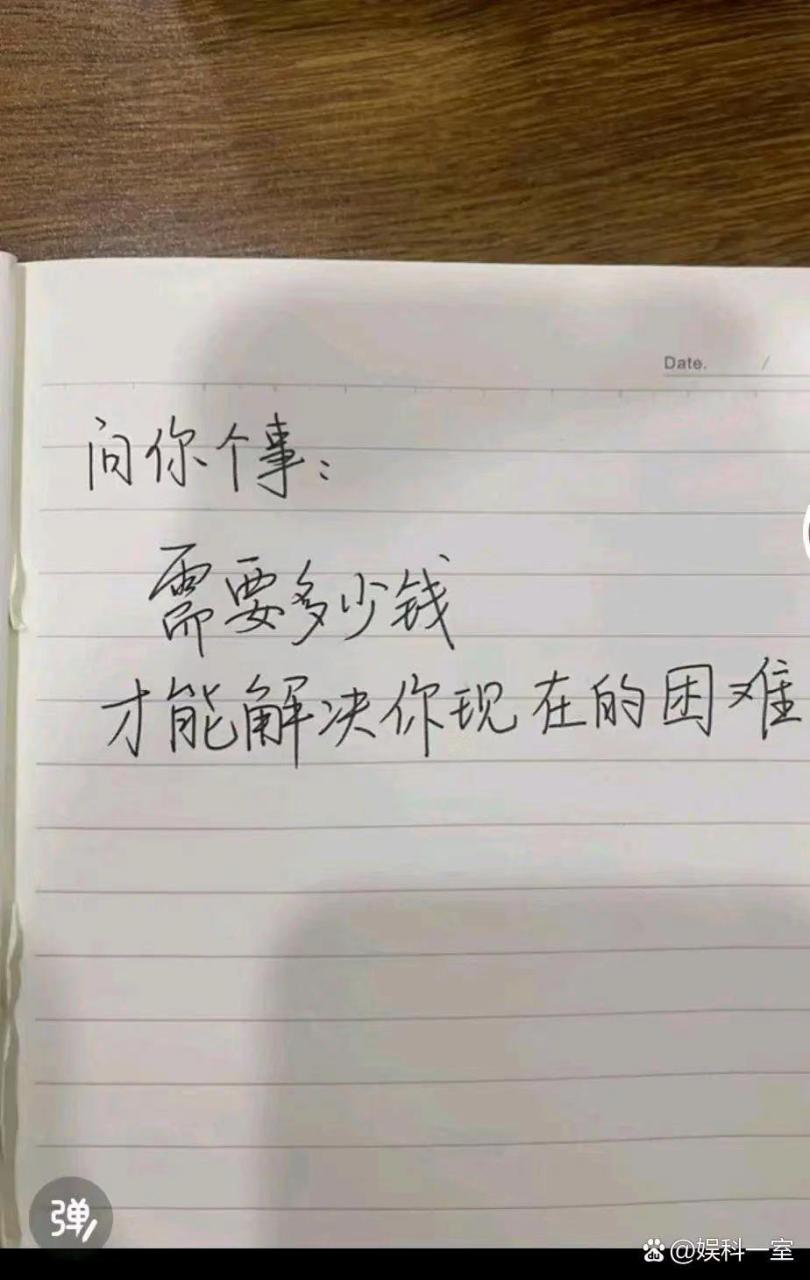 Date. /
问你个事:
需要多少钱
才能解决你现在的困难
弹
du @娱科一室